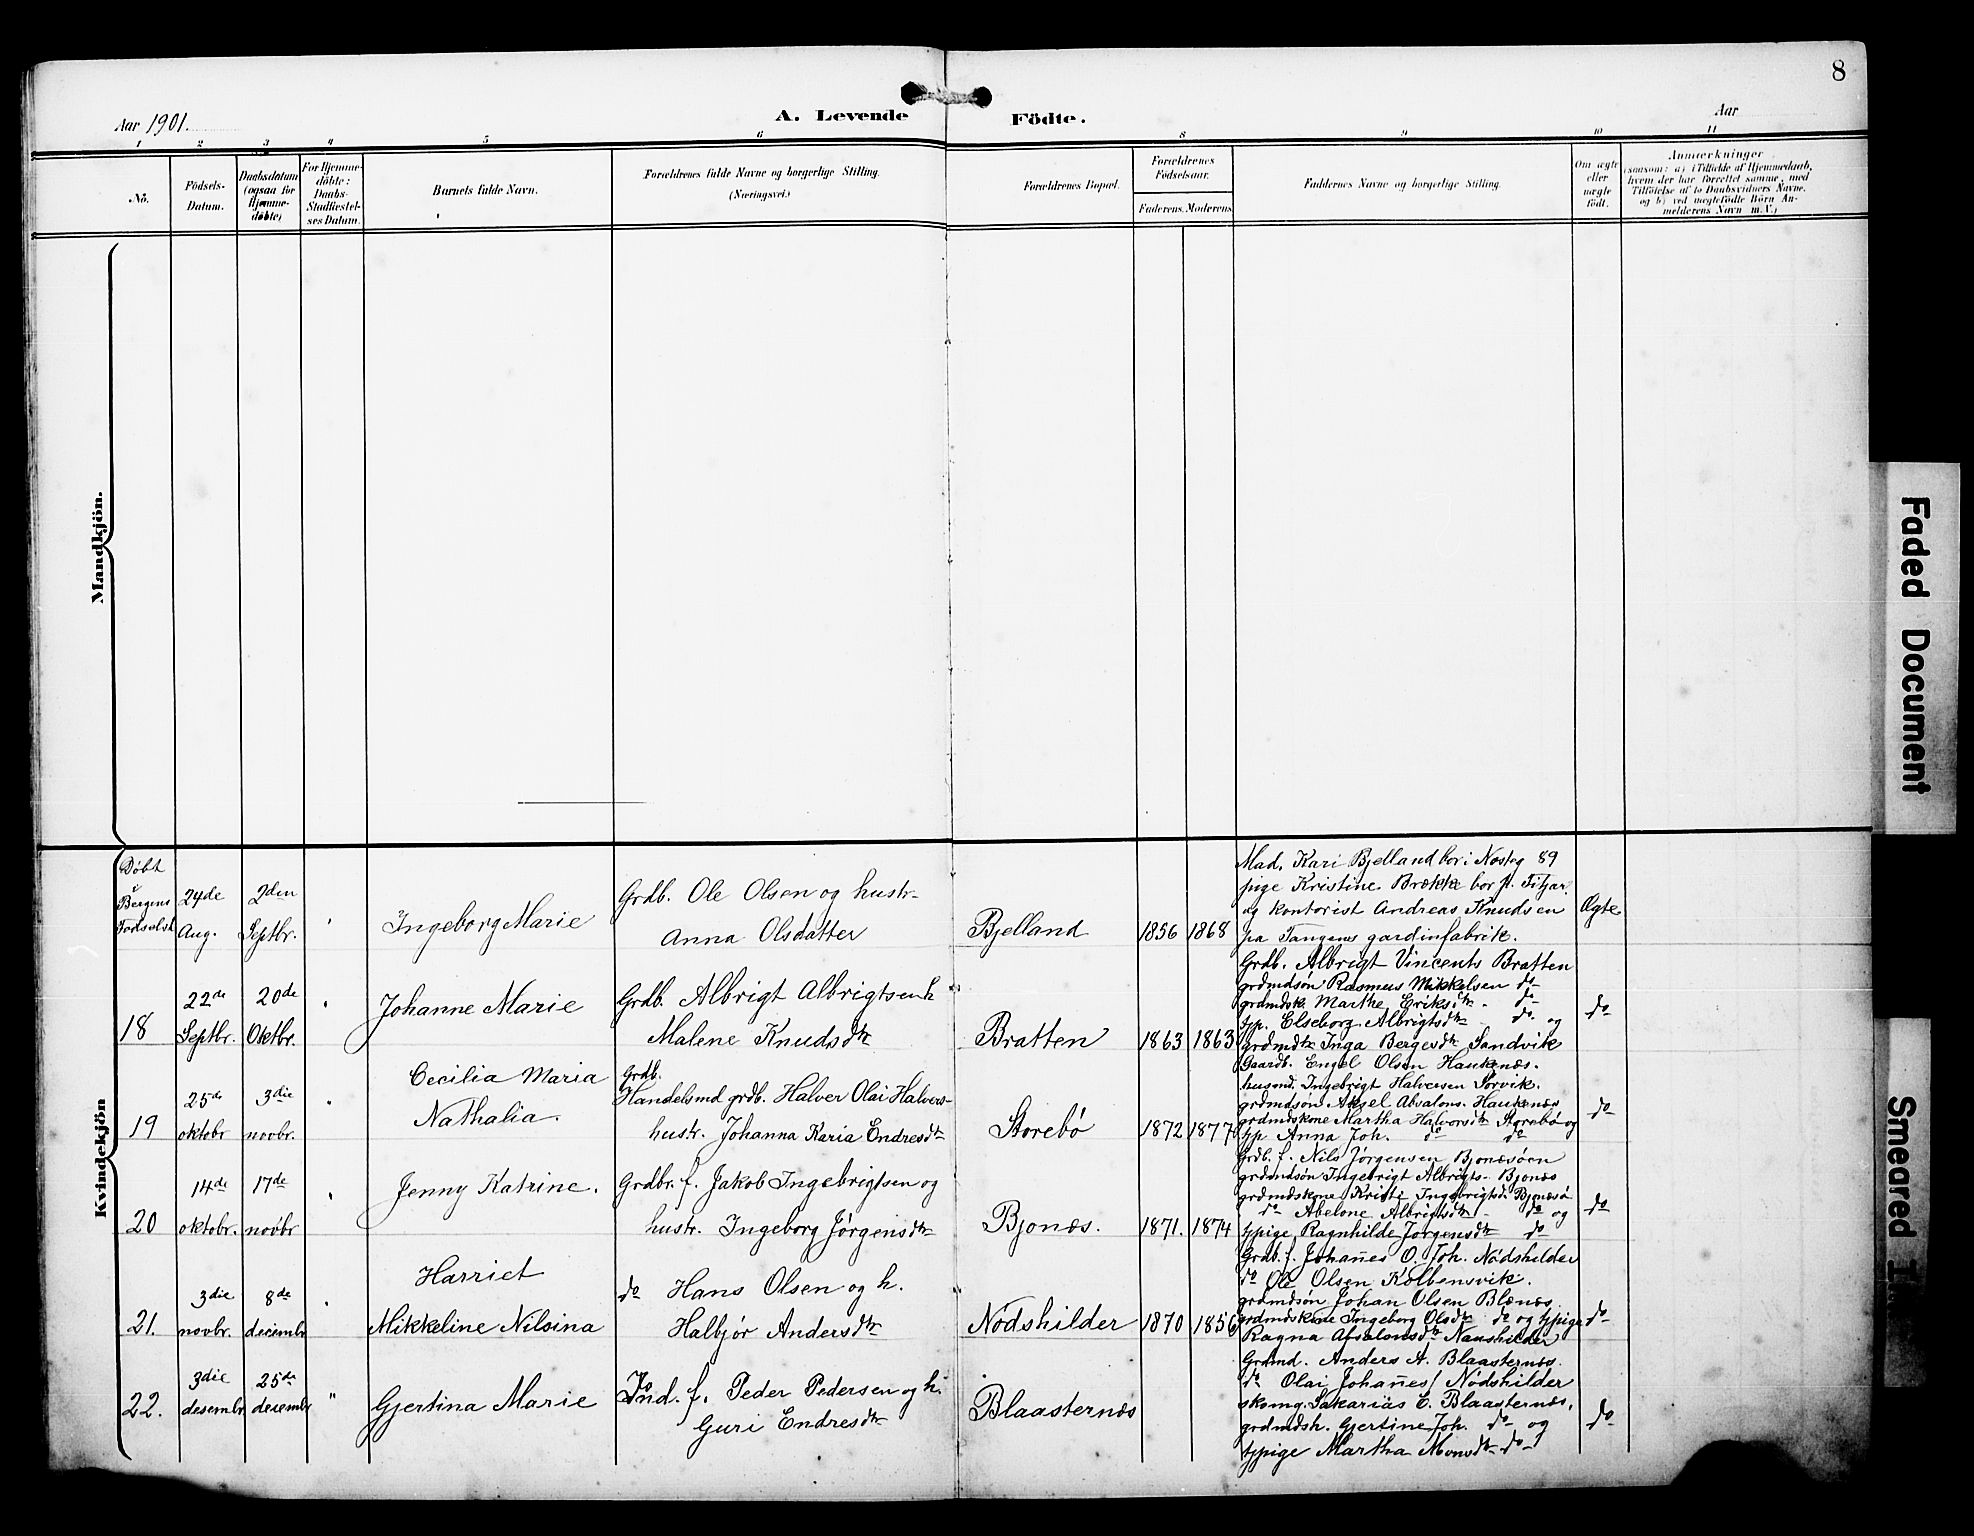 8
Aar 1901.
A. Levende Födte.
Aar
1 2 3 4 5 6 8 9 10 11
No.
Födsels-
Datum.
Daabsdatum
(ogsaa for
Hjemme-
döbte)
For Hjemme-
döbte:
Daabs-
Stadfæstel-
ses Datum.
Barnets fulde Navn.
Forældrenes fulde Navne og borgerlige Stilling.
(Næringsvei.)
Forældrenes Bopæl.
Forældrenes
Födselsaar.
Faderens. Moderens.
Faddernes Navne og borgerlige Stilling.
Om ægte
eller
uægte
födt.
Anmærkninger
(saasom: a) i Tilfælde af Hjemmedaab,
hvem der har forrettet samme, med
Tilföielse af to Daabsvidners Navne.
og b) ved uægtefödte Börn An-
melderens Navn m. V.)
Mandkjön.
Kvindekjön
Döbt
i
Bergens
Födselsst.
24de
Aug.
2den
Septbr.
Ingeborg Marie
Grdb. Ole Olsen og hustr.
Anna Olsdatter
Bjelland
1856 1868
Mad. Kari Bjelland bor i Nosteg 89
pige Kristine Brække bor p. Fitjar
og kontorist Andreas Knudsen
pa Tangens gardinfabrik.
Ægte
18
22de
Septbr.
20de
Oktbr.
Johanne Marie
Grdb. Albrigt Albrigtsen h
Malene Knudsdtr
Bratten
1863 1863
Grdb. Albrigt Vincents Bratten
grdmdsøn Rasmus Mikkelsen do
grdmdsk. Marthe Eriksdtr do
tjp. Elseborg Albrigtsdtr do og
grdmdtr Inga Bergesdtr Sandvik
do
19
25de
oktobr
3die
novbr.
Cecilia Maria
Nathalia.
Grdb.
Handelsmd grdb. Halver Olai Halvers-
hustr. Johanna Karia Endresdtr
Storebø
1872 1877
Gaardb. Engel Olsen Haukenæs.
husmd. Ingebrigt Halversen Sørvik.
grdmdsøn Aksel Absalons. Haukenæs
grdmdskone Martha Halvorsdtr Storebø og
tjp Anna Joh. do do
do
20
14de
oktobr.
17de
novbr
Jenny Katrine.
Grdbr. f. Jakob Ingebrigtsen og
hustr. Ingeborg Jørgensdtr
Bjonæs.
1871. 1874
Grdb. f. Nils Jørgensen Bjonæsöen
grdmdsøn Ingebrigt Albrigts- Bjonæs
grdmdskone Kristi Ingebrigtsd. Bjonæsö
do Abelone Albrigtsdtr do og
tjpige Ragnhilde Jørgensdtr do
do
21.
3die
novbr.
8de
decembr
Harriet
Mikkeline Nilsina
do Hans Olsen og h.
Halbjør Andersdtr
Nodshilder
1870 1856
Grdb. f. Johañes O. Joh. Nödshilder
do Ole Olsen Kolbensvik.
grdmdsøn Johan Olsen Blænæs
grdmdskone Ingeborg Olsdtr do og tjpige
Ragna Absalonsdtr Naushilder
do
22.
3die
desembr
25de
desembr
"
Gjertina Marie
Ind. f. Peder Pedersen og h.
Guri Endresdtr
Blaasternæs
Grdmd. Anders A. Blaasternæs.
do Olai Johañes/ Nödshilder
skomg. Sakariäs E. Blaasternæs,
grdmdsk. Gjertine Joh. do og
tjpige Martha Monsdtr do
do
Faded Document
Smeared